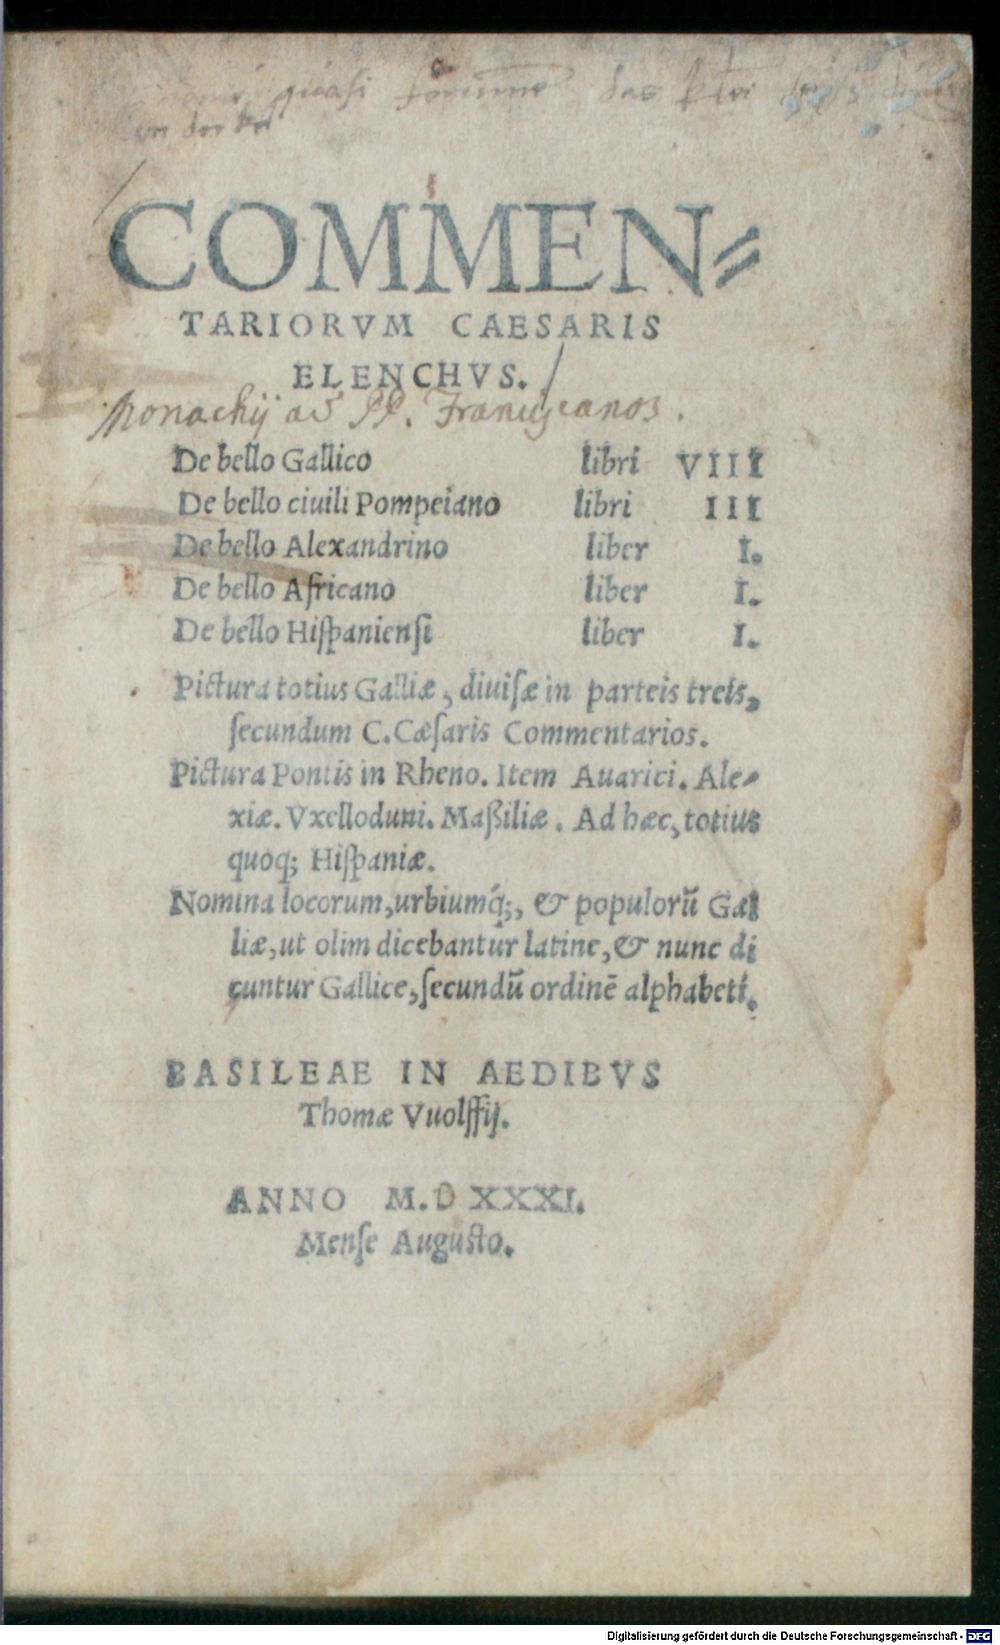 quasi
COMMEN⸗
TARIORVM CAESARIS
ELENCHVS.
Monachij ad PP. Franciscanos.
De bello Gallico libri VIII
De bello ciuili Pompeiano libri III
De bello Alexandrino liber I.
De bello Africano liber I.
De bello Hiſpanienſi liber I.
Pictura totius Galliæ, diuiſæ in parteis treis,
ſecundum C. Cæſaris Commentarios.
Pictura Pontis in Rheno. Item Auarici. Ale⸗
xiæ. Vxelloduni. Maßiliæ. Ad hæc, totius
quoq; Hiſpaniæ.
Nomina locorum, urbiumq́;, & populorū Gal
liæ, ut olim dicebantur latine, & nunc di
cuntur Gallice, ſecundū ordinē alphabeti.
BASILEAE IN AEDIBVS
Thomæ Vuolffij.
ANNO M.D XXXI.
Menſe Auguſto.
Digitalisierung gefördert durch die Deutsche Forschungsgemeinschaft - DFG